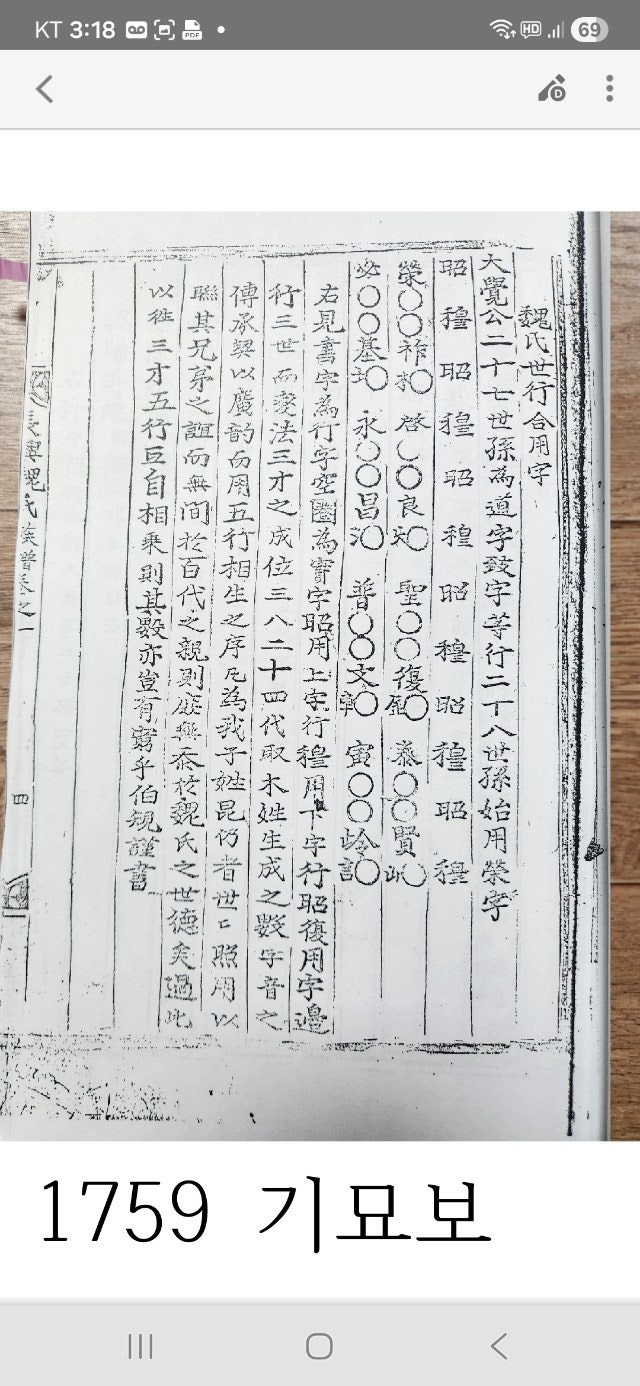 KT 3:18
HD
69
魏氏世行合用字
大覺公二十七世孫為道字致字等行二十八世孫始用榮字
昭 穆 昭 穆 昭 穆 昭 穆 昭 穆 昭 穆
榮○○祚 ○ 啓○○良 ○ 聖○○復 ○ 泰○○賢 ○
必○○基 ○ 永○○昌 ○ 普○○文 ○ 寅○○岭 ○
右見書字為行字空圈為實字昭用上字行穆用下字行昭復用字邊
行三世而變法三才之成位三八二十四代取木姓生成之數字音之
傳承契以廣韵而用五行相生之序凡為我子姓昆仍者世〻照用以
聯其兄弟之誼而無間於百代之親則庶無忝於魏氏之世德矣過此
以徃三才五行互自相乘則其數亦豈有窮乎伯珪謹書
長興魏氏族譜卷之一
四
1759 기묘보